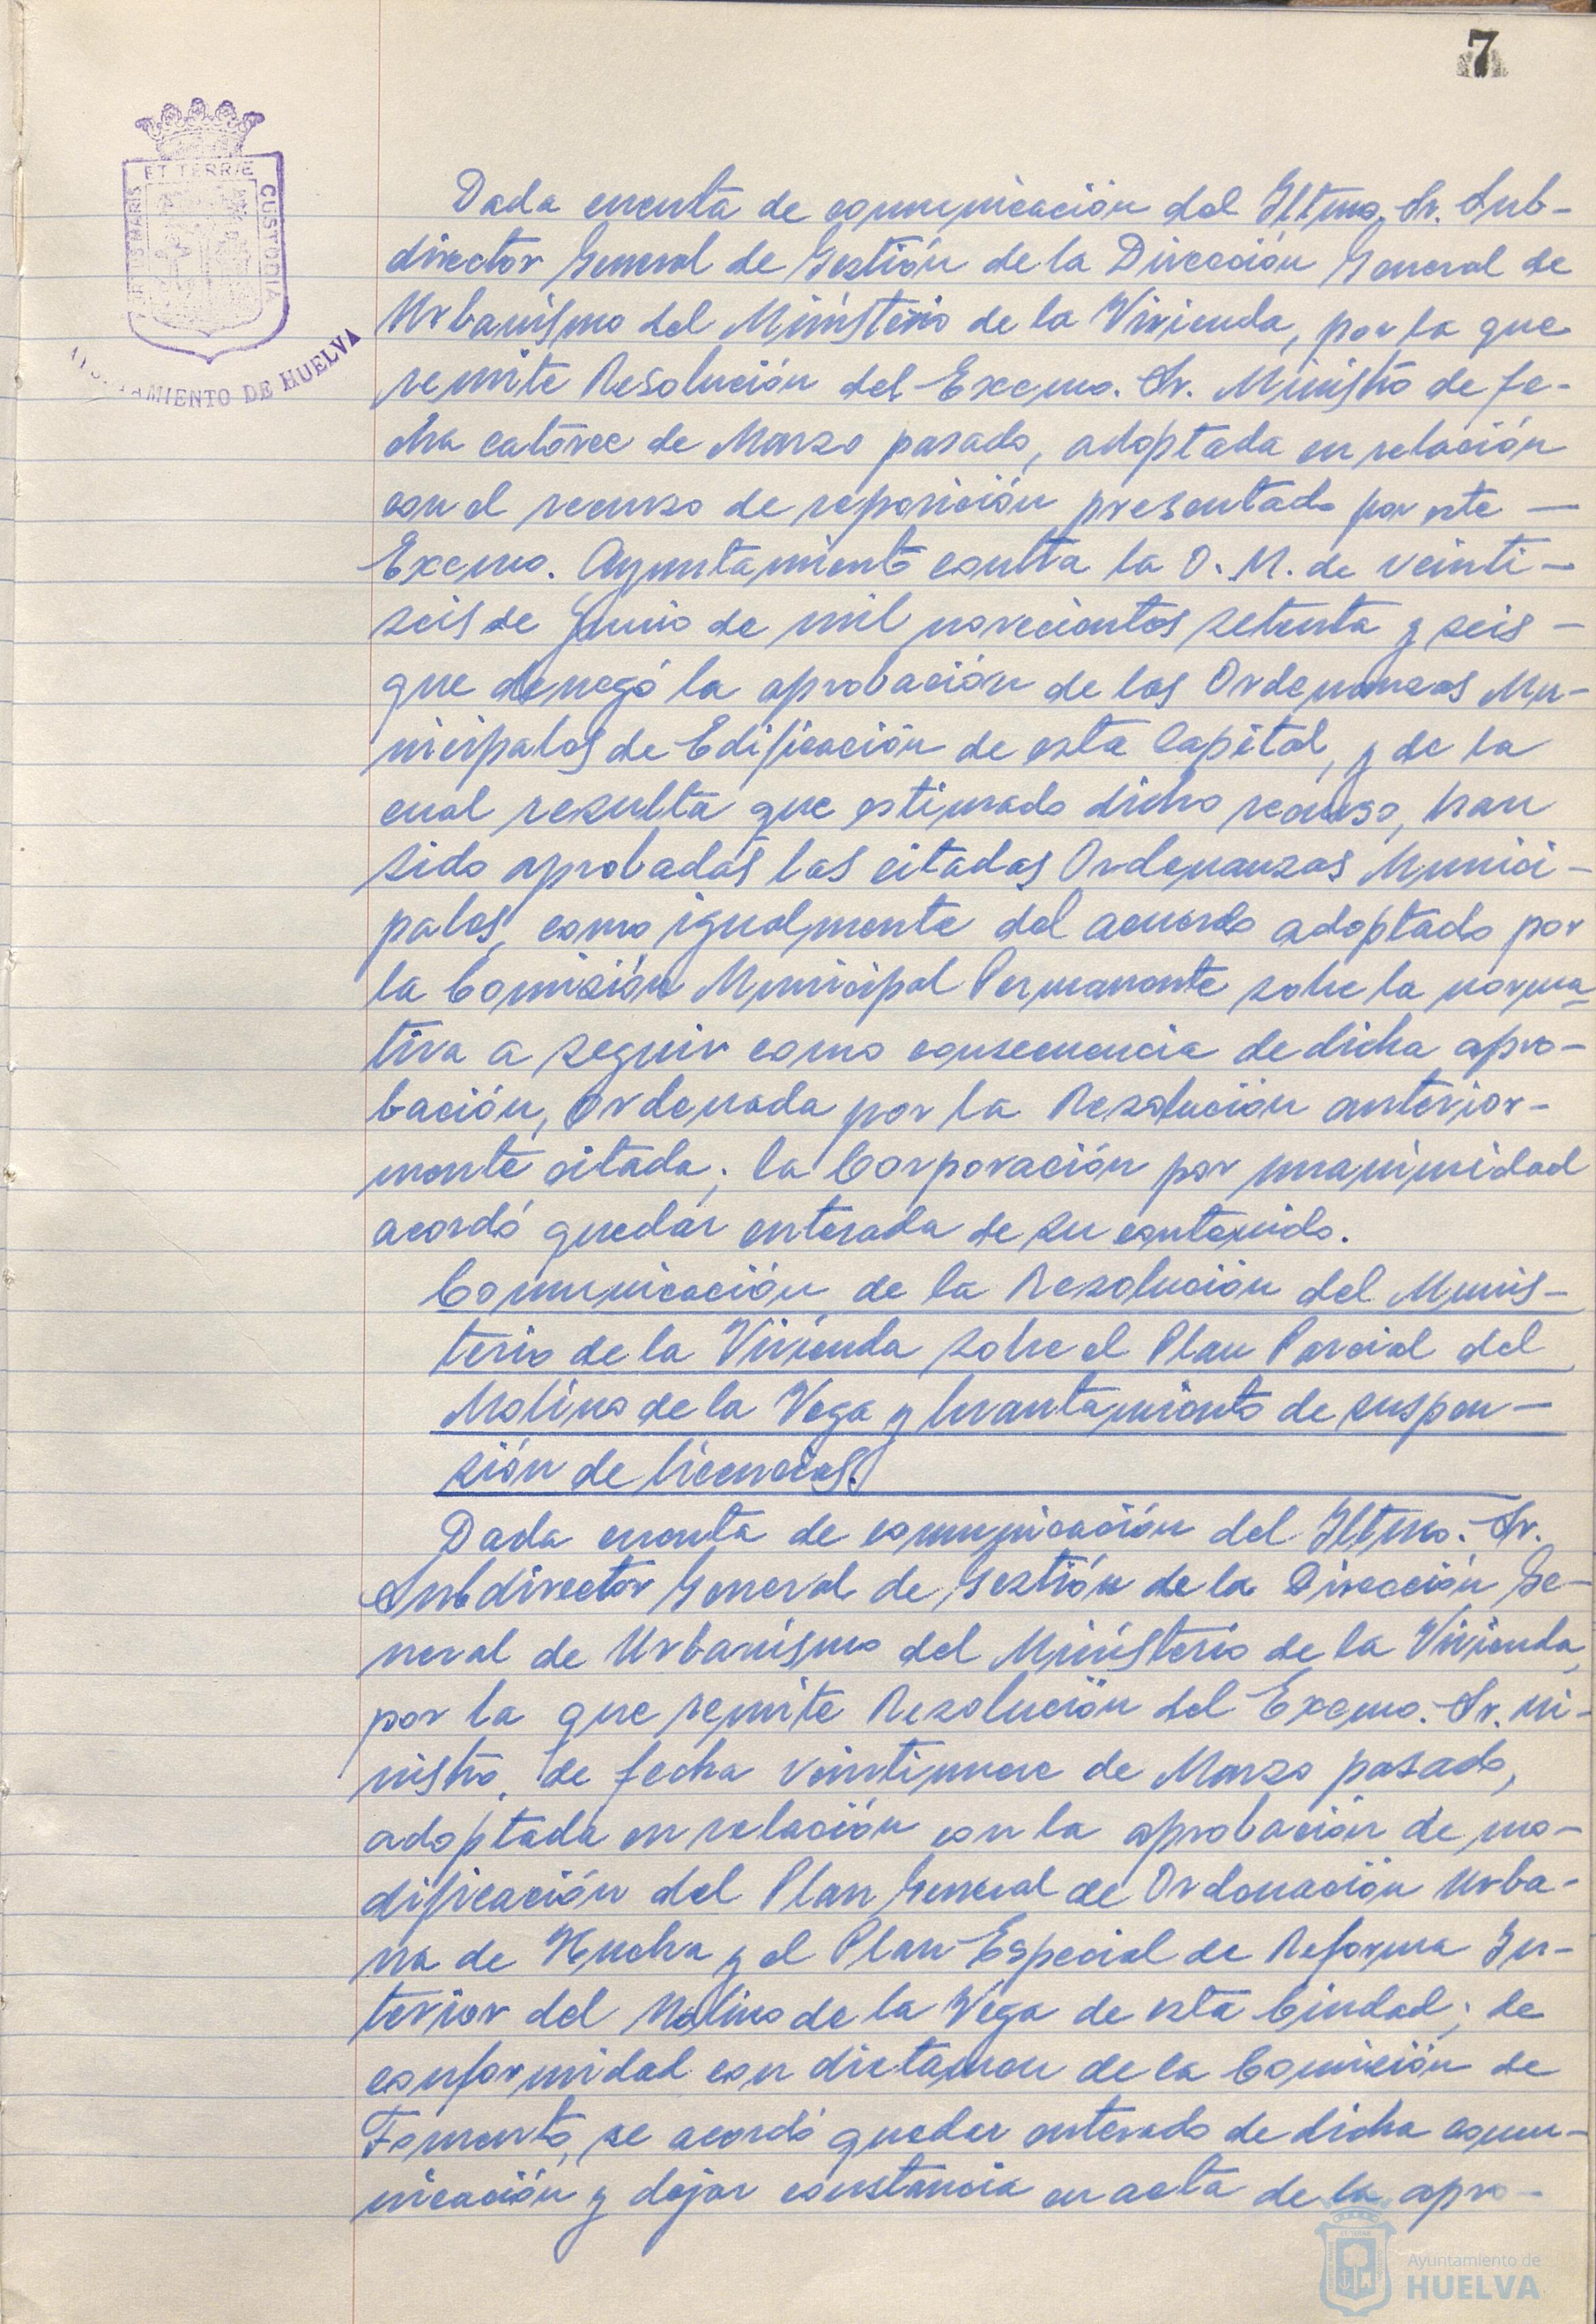 7
ET TERRÆ
CUSTODIA
PORTUS MARIS
AYUNTAMIENTO DE HUELVA
Dada cuenta de comunicación del Iltmo. Sr. Sub-
director General de Gestión de la Dirección General de
Urbanismo del Ministerio de la Vivienda, por la que
remite Resolución del Excmo. Sr. Ministro de fe-
cha catorce de Marzo pasado, adoptada en relación
con el recurso de reposición presentado por este —
Excmo. Ayuntamiento contra la O. M. de veinti-
seis de Junio de mil novecientos setenta y seis —
que denegó la aprobación de las Ordenanzas Mu-
nicipales de Edificación de esta Capital, y de la
cual resulta que estimado dicho recurso, han
sido aprobadas las citadas Ordenanzas Munici-
pales, como igualmente del acuerdo adoptado por
la Comisión Municipal Permanente sobre la norma-
tiva a seguir como consecuencia de dicha apro-
bación, ordenada por la Resolución anterior-
mente citada; la Corporación por unanimidad
acordó quedar enterada de su contenido.
Comunicación de la Resolución del Minis-
terio de la Vivienda sobre el Plan Parcial del
Molino de la Vega y levantamiento de suspen-
sión de licencias.
Dada cuenta de comunicación del Iltmo. Sr.
Subdirector General de Gestión de la Dirección Ge-
neral de Urbanismo del Ministerio de la Vivienda,
por la que remite Resolución del Excmo. Sr. Mi-
nistro, de fecha veintinueve de Marzo pasado,
adoptada en relación con la aprobación de mo-
dificación del Plan General de Ordenación Urba-
na de Huelva y el Plan Especial de Reforma In-
terior del Molino de la Vega de esta Ciudad; de
conformidad con dictamen de la Comisión de
Fomento, se acordó quedar enterado de dicha comu-
nicación y dejar constancia en acta de la apro-
Ayuntamiento de
HUELVA